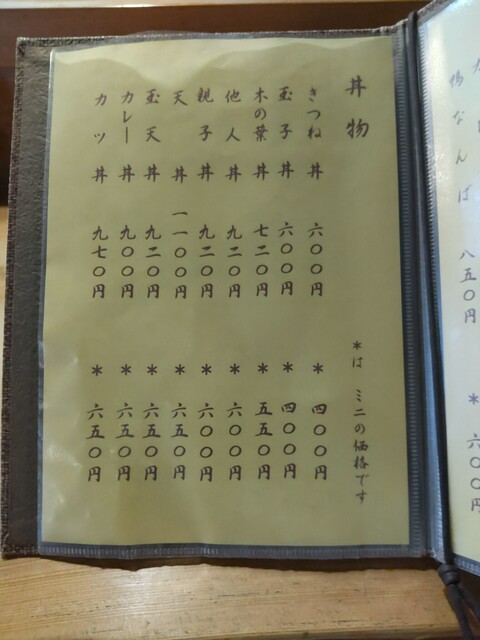 鴨なんば 八五〇円 * 六〇〇円
丼物 *は ミニの価格です
きつね丼 六〇〇円 * 四〇〇円
玉子丼 六〇〇円 * 四〇〇円
木の葉丼 七二〇円 * 五五〇円
他人丼 九二〇円 * 六〇〇円
親子丼 九二〇円 * 六〇〇円
天丼 一一〇〇円 * 六五〇円
玉天丼 九二〇円 * 六五〇円
カレー丼 九〇〇円 * 六五〇円
カツ丼 九七〇円 * 六五〇円